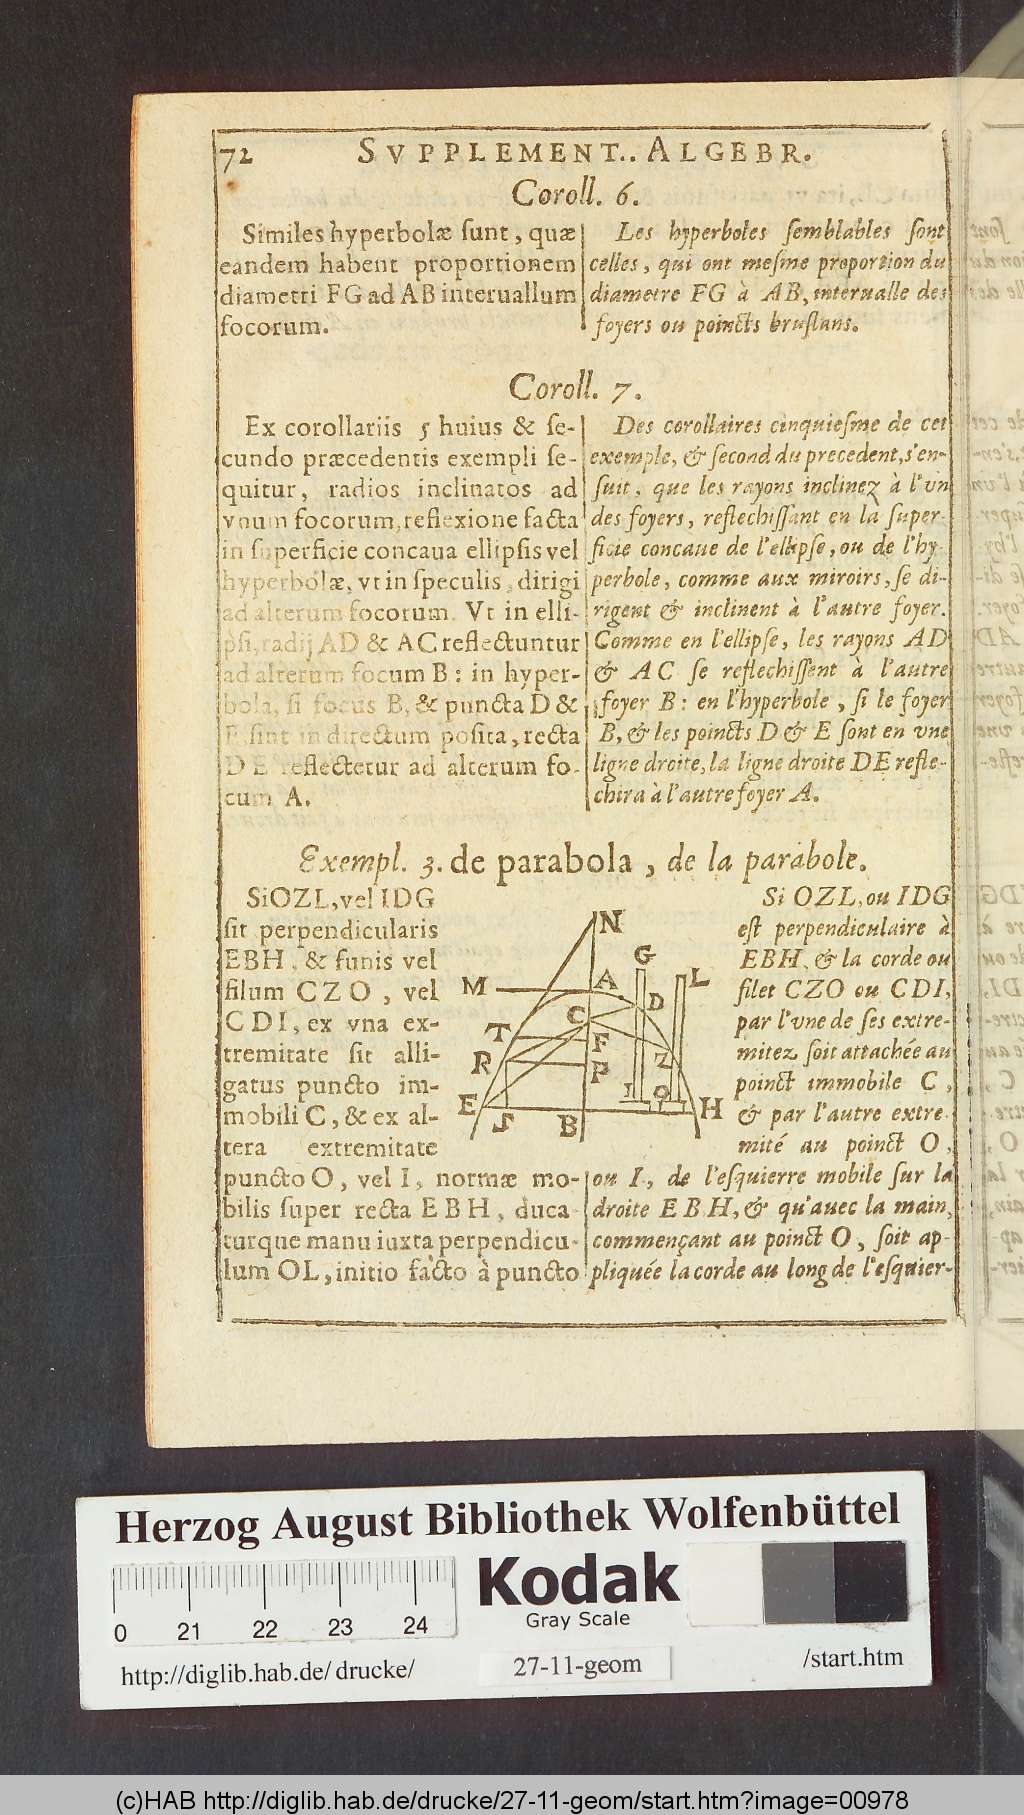 72 SVPPLEMENT.. ALGEBR.
Coroll. 6.
Similes hyperbolæ ſunt, quæ
eandem habent proportionem
diametri FG ad AB interuallum
focorum.
Les hyperboles ſemblables ſont
celles, qui ont meſme proportion du
diametre FG à AB, interualle des
foyers ou poincts bruſlans.
Coroll. 7.
Ex corollariis 5 huius & ſe-
cundo præcedentis exempli ſe-
quitur, radios inclinatos ad
vnum focorum, reflexione facta
in ſuperficie concaua ellipſis vel
hyperbolæ, vt in ſpeculis, dirigi
ad alterum focorum. Vt in elli-
pſi, radij AD & AC reflectuntur
ad alterum focum B: in hyper-
bola, ſi focus B, & puncta D &
E, ſint in directum poſita, recta
DE reflectetur ad alterum fo-
cum A.
Des corollaires cinquieſme de cet
exemple, & ſecond du precedent, s'en-
ſuit, que les rayons inclinez à l'vn
des foyers, reflechiſſant en la ſuper-
ficie concaue de l'ellipſe, ou de l'hy-
perbole, comme aux miroirs, ſe di-
rigent & inclinent à l'autre foyer.
Comme en l'ellipſe, les rayons AD
& AC ſe reflechiſſent à l'autre
foyer B: en l'hyperbole, ſi le foyer
B, & les poincts D & E ſont en vne
ligne droite, la ligne droite DE refle-
chira à l'autre foyer A.
Exempl. 3. de parabola, de la parabole.
Si OZL, vel IDG
ſit perpendicularis
EBH, & funis vel
filum CZO, vel
CDI, ex vna ex-
tremitate ſit alli-
gatus puncto im-
mobili C, & ex al-
tera extremitate
puncto O, vel I, normæ mo-
bilis ſuper recta EBH, duca-
turque manu iuxta perpendicu-
lum OL, initio facto à puncto
N
G
M A L
D
C
T F
R P Z
I O
E S B H
Si OZL, ou IDG
eſt perpendiculaire à
EBH, & la corde ou
filet CZO ou CDI,
par l'vne de ſes extre-
mitez ſoit attachée au
poinct immobile C,
& par l'autre extre-
mité au poinct O,
ou I, de l'eſquierre mobile ſur la
droite EBH, & qu'auec la main,
commençant au poinct O, ſoit ap-
pliquée la corde au long de l'eſquier-
Herzog August Bibliothek Wolfenbüttel
Kodak
Gray Scale
0 21 22 23 24
http://diglib.hab.de/drucke/ 27-11-geom /start.htm
(c)HAB http://diglib.hab.de/drucke/27-11-geom/start.htm?image=00978